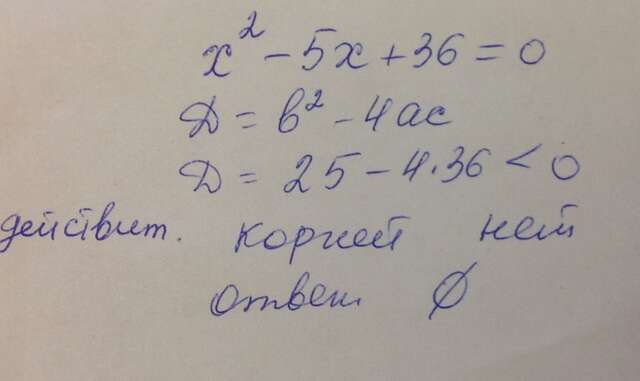 x² - 5x + 36 = 0
D = b² - 4ac
D = 25 - 4·36 < 0
действит. корней нет
ответ ∅